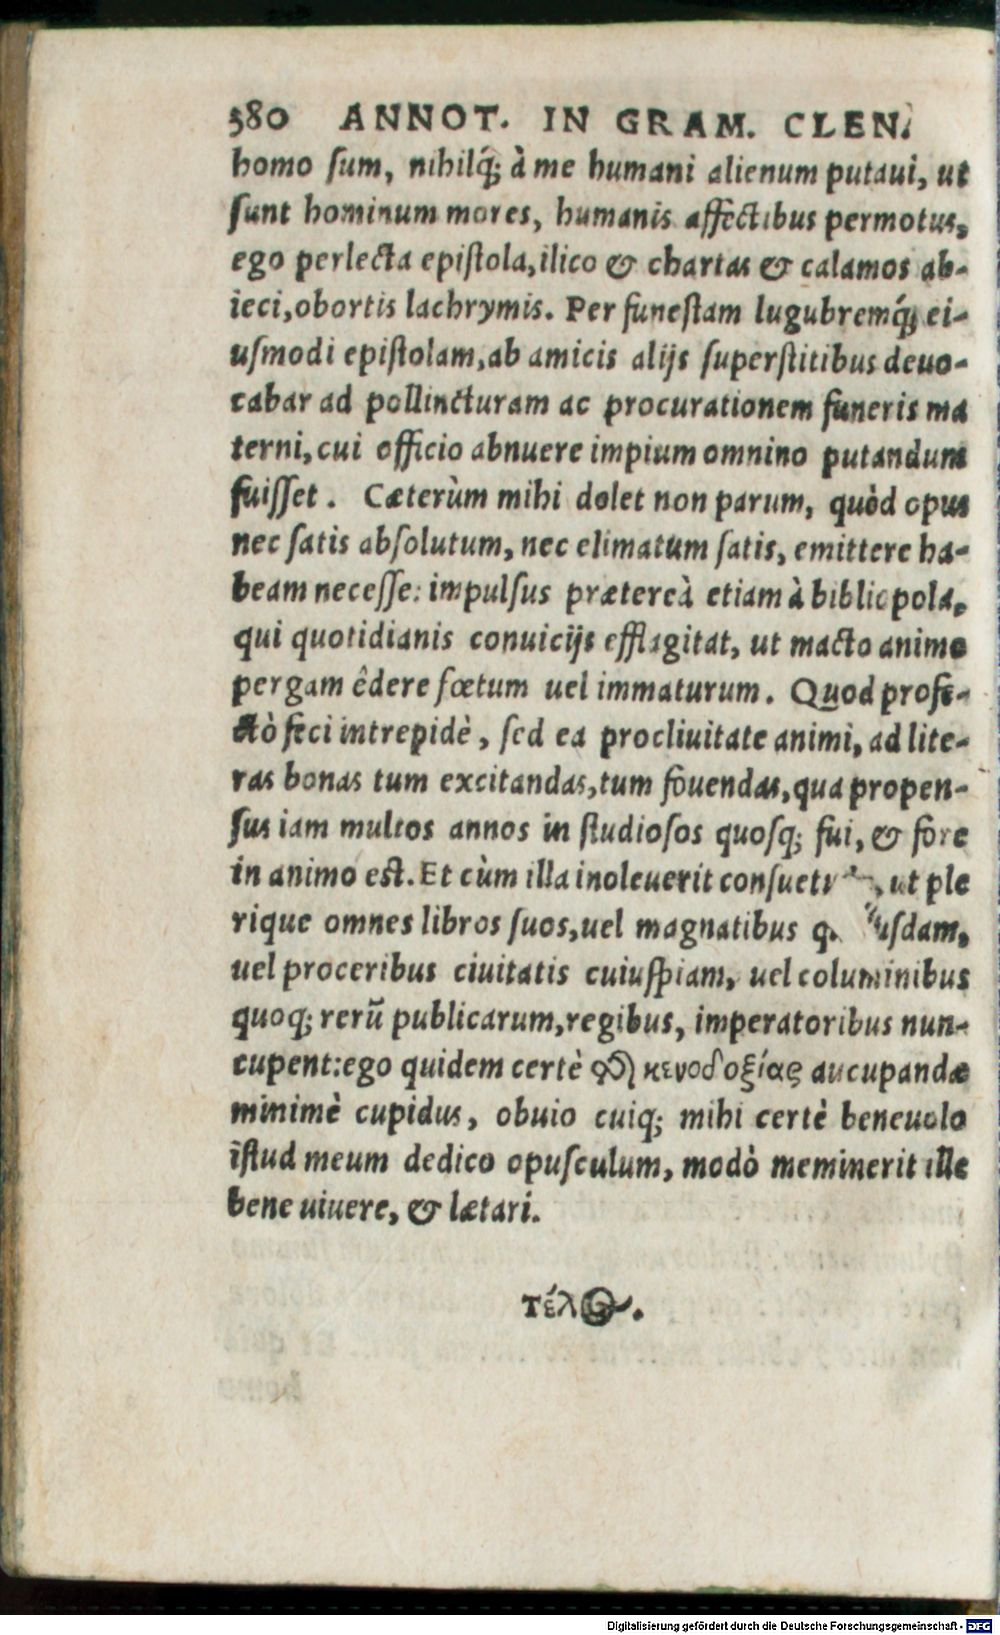 580 ANNOT. IN GRAM. CLEN.
homo ſum, nihilq́; à me humani alienum putaui, ut
ſunt hominum mores, humanis affectibus permotus,
ego perlecta epiſtola, ilico & chartas & calamos ab-
ieci, obortis lachrymis. Per funeſtam lugubremq́; ei-
uſmodi epiſtolam, ab amicis alijs ſuperſtitibus deuo-
cabar ad pollincturam ac procurationem funeris ma
terni, cui officio abnuere impium omnino putandum
fuiſſet. Cæterùm mihi dolet non parum, quòd opus
nec ſatis abſolutum, nec elimatum ſatis, emittere ha-
beam neceſſe: impulſus prætereà etiam à bibliopola,
qui quotidianis conuicijs efflagitat, ut macto animo
pergam êdere fœtum uel immaturum. Quod profe-
ctò feci intrepidè, ſed ea procliuitate animi, ad lite-
ras bonas tum excitandas, tum fouendas, qua propen-
ſus iam multos annos in ſtudioſos quoſq; fui, & fore
in animo est. Et cùm illa inoleuerit , ut ple
rique omnes libros ſuos, uel magnatibus
uel proceribus ciuitatis cuiuſpiam, uel columinibus
quoq; rerū publicarum, regibus, imperatoribus nun-
cupent: ego quidem certè κενοδοξίας aucupandæ
minimè cupidus, obuio cuiq; mihi certè beneuolo
iſtud meum dedico opuſculum, modò meminerit ille
bene uiuere, & lætari.
τέλος.
Digitalisierung gefördert durch die Deutsche Forschungsgemeinschaft - DFG